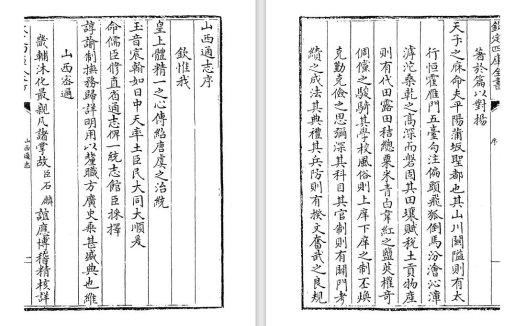 山西通志序
欽惟我
皇上體精一之心傳紹唐虞之治統
玉音宸翰如日中天率土臣民大同大順爰
命儒臣修直省通志俾一統志館臣採擇
諄諭制撫務歸詳明用以釐職方廣史乘甚盛典也維
山西密邇
畿輔沐化最親凡諸掌故臣石麟謹應博稽精核詳
山西通志
一
欽定四庫全書
序
著於篇以對揚
天子之庥命夫平陽蒲坂聖都也其山川關隘則有太
行恒霍雁門五臺句注偏頭飛狐倒馬汾澮沁漳
滹沱桑乾之高深而磐固其田壤賦税土貢物產
則有代田露田秸總粟米青白葦紅之鹽英權奇
倜儻之駿騎其學校風俗則上庠下庠之制丕煥
克勤克儉之思彌深其科目其官制則有闢門考
績之成法其典禮其兵防則有揆文奮武之良規